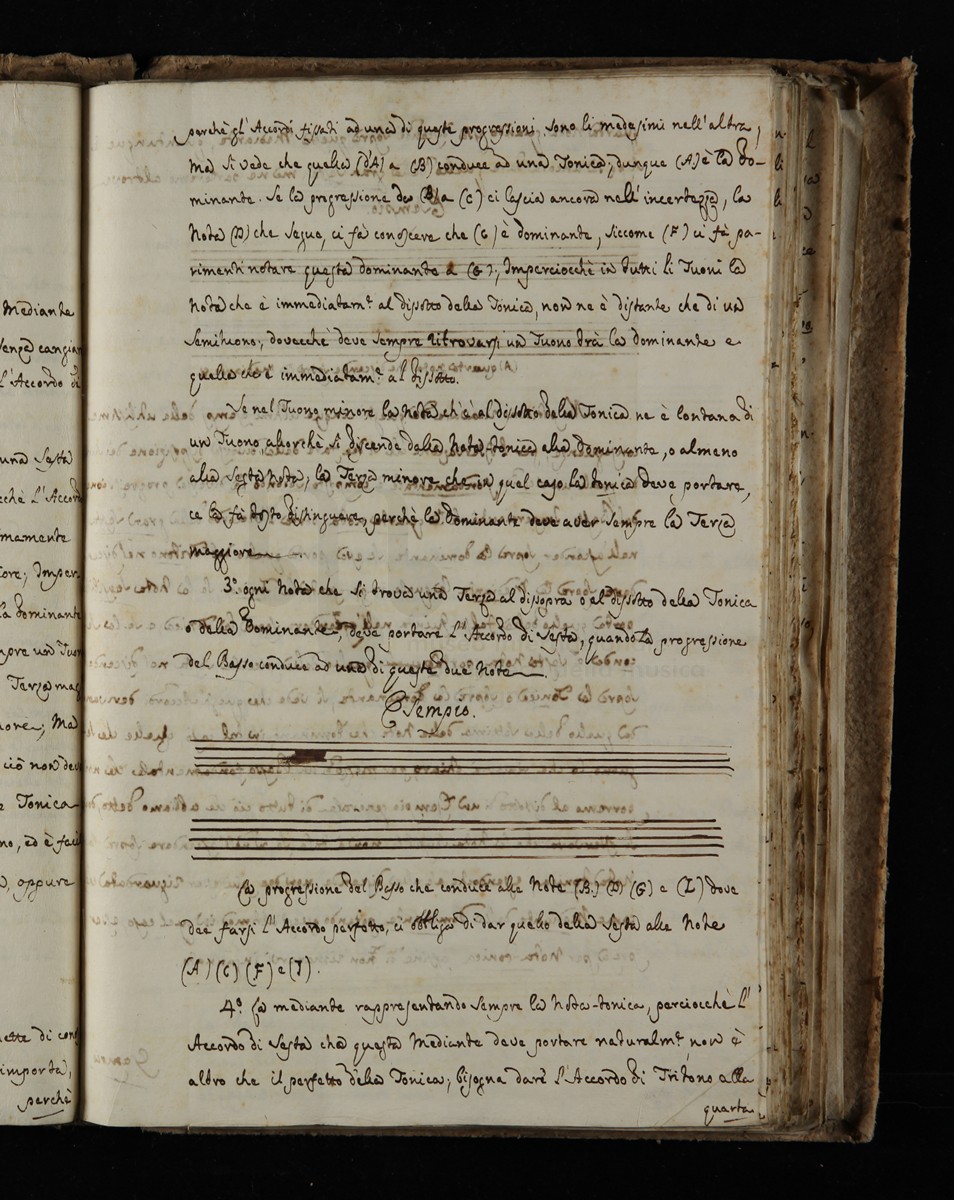 Mediante
senza cangiar
L'Accordo di
una Sesta
cchè L'Accord
mamente
ore; Imper
la dominante
mpre un Tuon
Terza mag
nore; Ma
ciò non dev
Tonica
no, ed è faci
oppure
mette di con
importa,
perchè
perchè gl'Accordi fissati ad una di queste progressioni sono li medesimi nell'altra,
Ma si vede che quella (d'A) a (B) conduce ad una Tonica; dunque (A) è la do-
minante. Se la progressione da (B) a (C) ci lascia ancora nell'incertezza, la
Nota (D) che segue, ci fa conoscere che (C) è dominante, siccome (F) ci fà pa-
rimenti notare questa dominante a (G); Imperciocchè in tutti li Tuoni la
Nota che è immediatam.te al dissotto della Tonica, non ne è distante che di un
Semituono; dovecchè deve sempre ritrovarsi un Tuono trà la dominante e
quella che è immediatam.te al dissotto.
Se nel Tuono minore la Nota ch'è al dissotto della Tonica ne è lontana di
un Tuono, allorchè si discende dalla Nota-tonica alla dominante, o almeno
alla Sesta Nota; la Terza minore che in quel caso la tonica deve portare,
ce la fà tosto distinguere, perchè la dominante deve aver sempre la Terza
maggiore.
3.º ogni Nota che si trova una Terza al dissopra o al dissotto della Tonica
o della Dominante, deve portare L'Accordo di Sesta, quando la progressione
del Basso conduce ad una di queste due Note.
Esempio.
La progressione del Basso che conduce alle Note (B.) (D) (G) e (L) dove
dee farsi L'Accordo perfetto, ci obbliga di dar quello della Sesta alle Note
(A) (C) (F) e (I).
4.º La mediante rappresentando sempre la Nota-tonica, perciocchè l'
Accordo di Sesta che questa Mediante deve portare naturalm.te non è
altro che il perfetto della Tonica, bisogna dare L'Accordo di Tritono alla
quarta